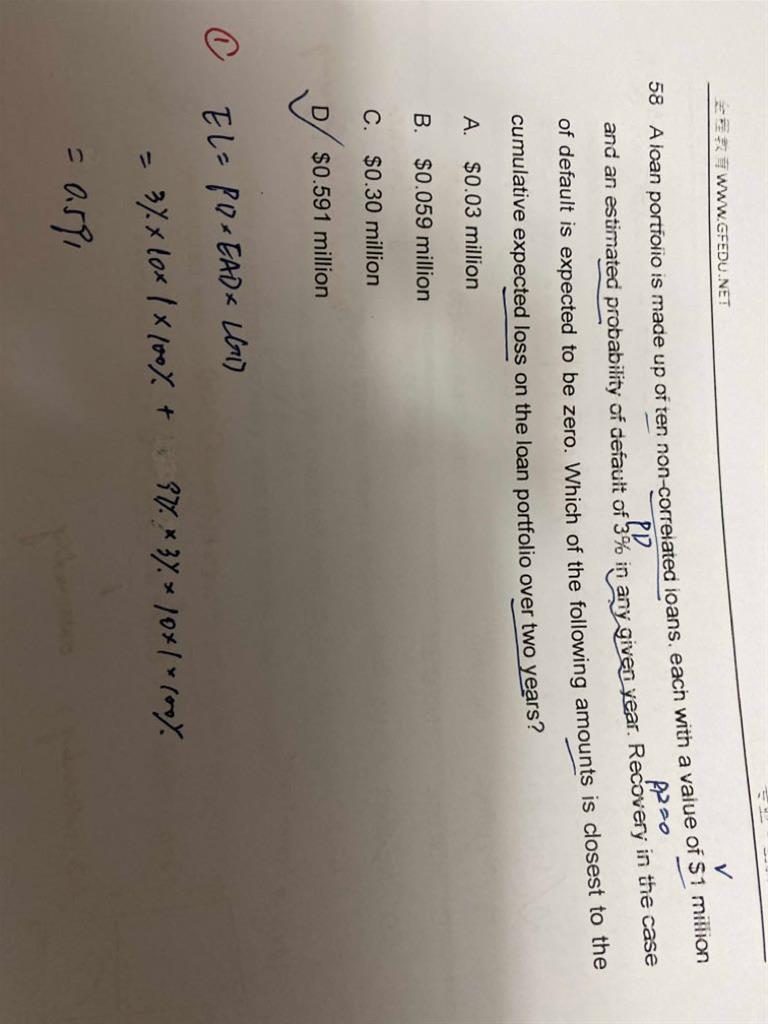 全程教育 WWW.GFEDU.NET
58 A loan portfolio is made up of ten non-correlated loans, each with a value of $1 million
PD
and an estimated probability of default of 3% in any given year. Recovery in the case
of default is expected to be zero. Which of the following amounts is closest to the
cumulative expected loss on the loan portfolio over two years?
A. $0.03 million
B. $0.059 million
C. $0.30 million
D. $0.591 million
① EL = PD × EAD × LGD
= 3% × 10 × 1 × 100% + 97% × 3% × 10 × 1 × 100%
= 0.591